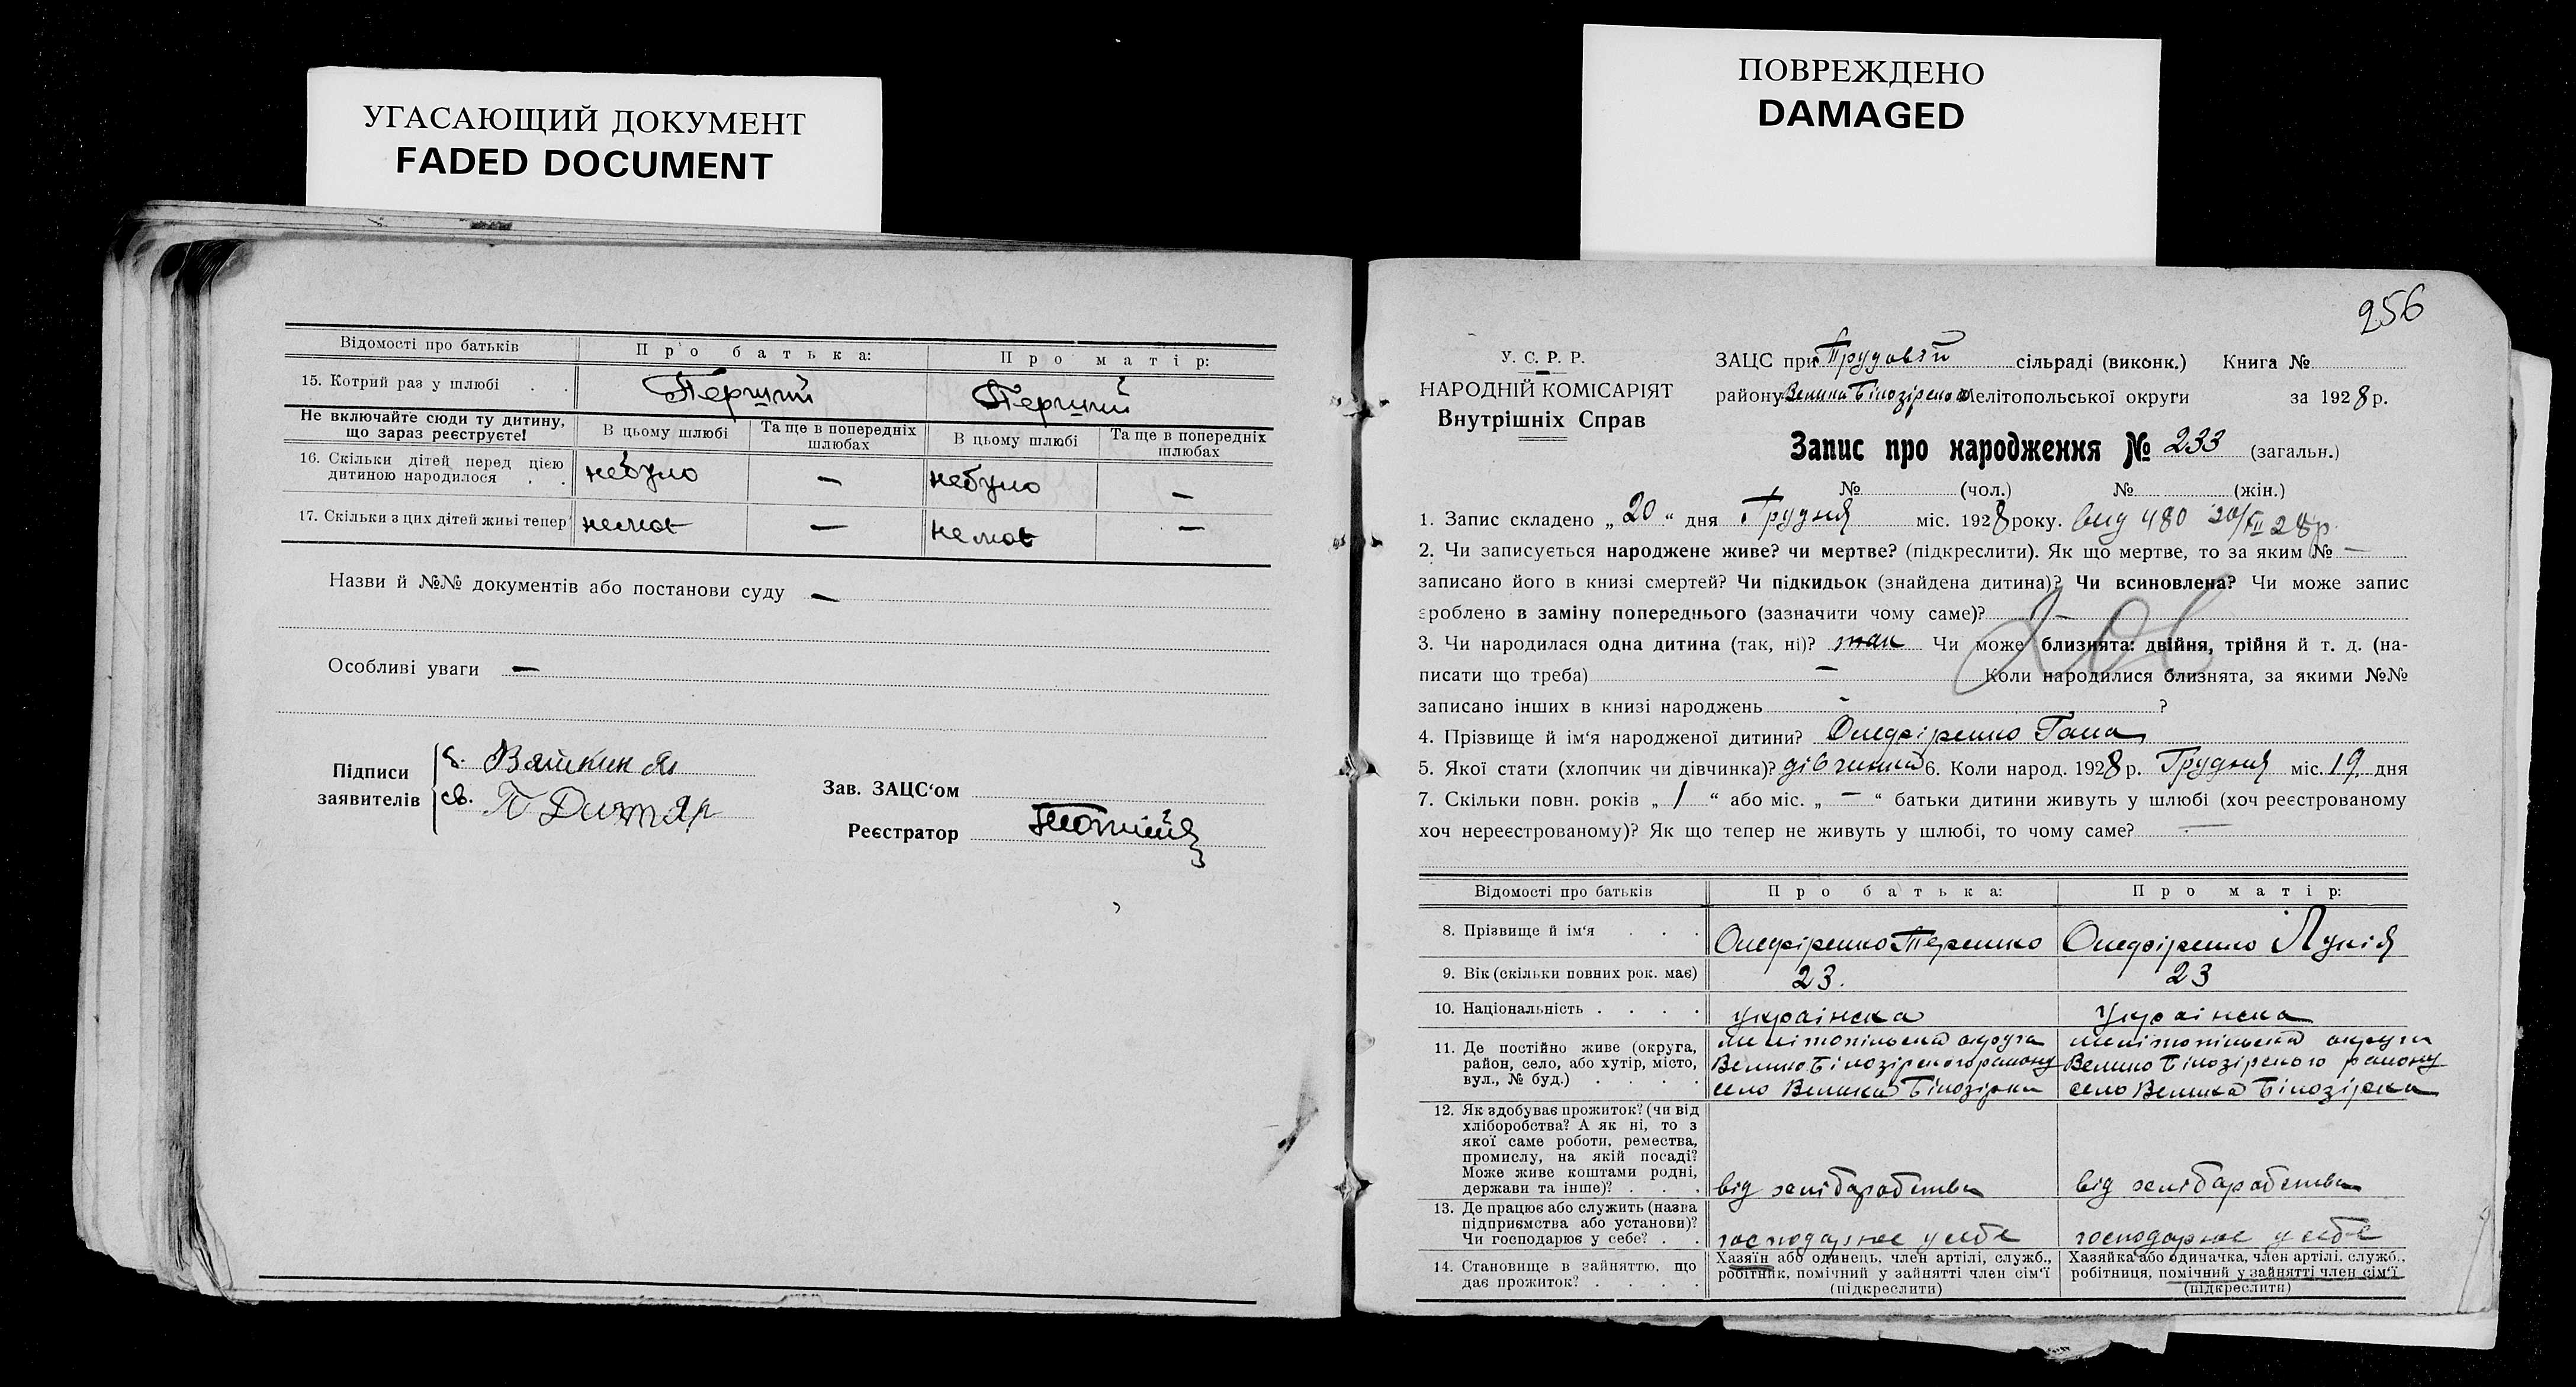 УГАСАЮЩИЙ ДОКУМЕНТ
FADED DOCUMENT
ПОВРЕЖДЕНО
DAMAGED
Відомості про батьків Про батька: Про матір:
15. Котрий раз у шлюбі . . Перший Перший
Не включайте сюди ту дитину, що зараз реєструєте!
В цьому шлюбі Та ще в попередніх шлюбах В цьому шлюбі Та ще в попередніх шлюбах
16. Скільки дітей перед цією
дитиною народилося . . небуло — небуло —
17. Скільки з цих дітей живі тепер немає — немає —
Назви й №№ документів або постанови суду —
Особливі уваги —
Підписи
заявителів
б.
св.
Зав. ЗАЦС‘ом
Реєстратор
256
У. С. Р. Р.
НАРОДНІЙ КОМІСАРІЯТ
Внутрішніх Справ
ЗАЦС при Трудовій сільраді (виконк.) Книга №
району Велико Білозірського Мелітопольської округи за 1928 р.
Запис про народження № 233 (загальн.)
№ (чол.) № (жін.)
1. Запис складено „ 20 “ дня Грудня міс. 1928 року. вид 480 20/XII 28р.
2. Чи записується народжене живе? чи мертве? (підкреслити). Як що мертве, то за яким № —
записано його в книзі смертей? Чи підкидьок (знайдена дитина)? Чи всиновлена? Чи може запис
зроблено в заміну попереднього (зазначити чому саме)? —
3. Чи народилася одна дитина (так, ні)? так Чи може близнята: двійня, трійня й т. д. (на-
писати що треба) — Коли народилися близнята, за якими №№
записано інших в книзі народжень - ?
4. Прізвище й ім‘я народженої дитини? Онефіренко Гана
5. Якої стати (хлопчик чи дівчинка)? дівчинка 6. Коли народ. 1928 р. Грудня міс. 19 дня
7. Скільки повн. років „ 1 “ або міс. „ — “ батьки дитини живуть у шлюбі (хоч реєстрованому
хоч нереєстрованому)? Як що тепер не живуть у шлюбі, то чому саме? —
Відомості про батьків Про батька: Про матір:
8. Прізвище й ім‘я . . . Онефіренко Онефіренко Лукія
9. Вік (скільки повних рок. має) 23. 23
10. Національність . . . . українска Українска
11. Де постійно живе (округа,
район, село, або хутір, місто,
вул., № буд.) . . . .
мелітопільска округа
Велико Білозірского району
село Велика Білозірка
мелітопільска округа
Велико Білозірского району
село Велика Білозірка
12. Як здобуває прожиток? (чи від
хліборобства? А як ні, то з
якої саме роботи, ремества,
промислу, на якій посаді?
Може живе коштами родні,
держави та інше)? . . . від хліборобства від хліборобства
13. Де працює або служить (назва
підприємства або установи)?
Чи господарює у себе? . . господарює у себе господарює у себе
14. Становище в зайняттю, що
дає прожиток? . . . .
Хазяїн або одинець, член артілі, служб.,
робітник, помічний у зайнятті член сім‘ї
(підкреслити)
Хазяйка або одиначка, член артілі, служб.,
робітниця, помічний у зайнятті член сім‘ї
(підкреслити)